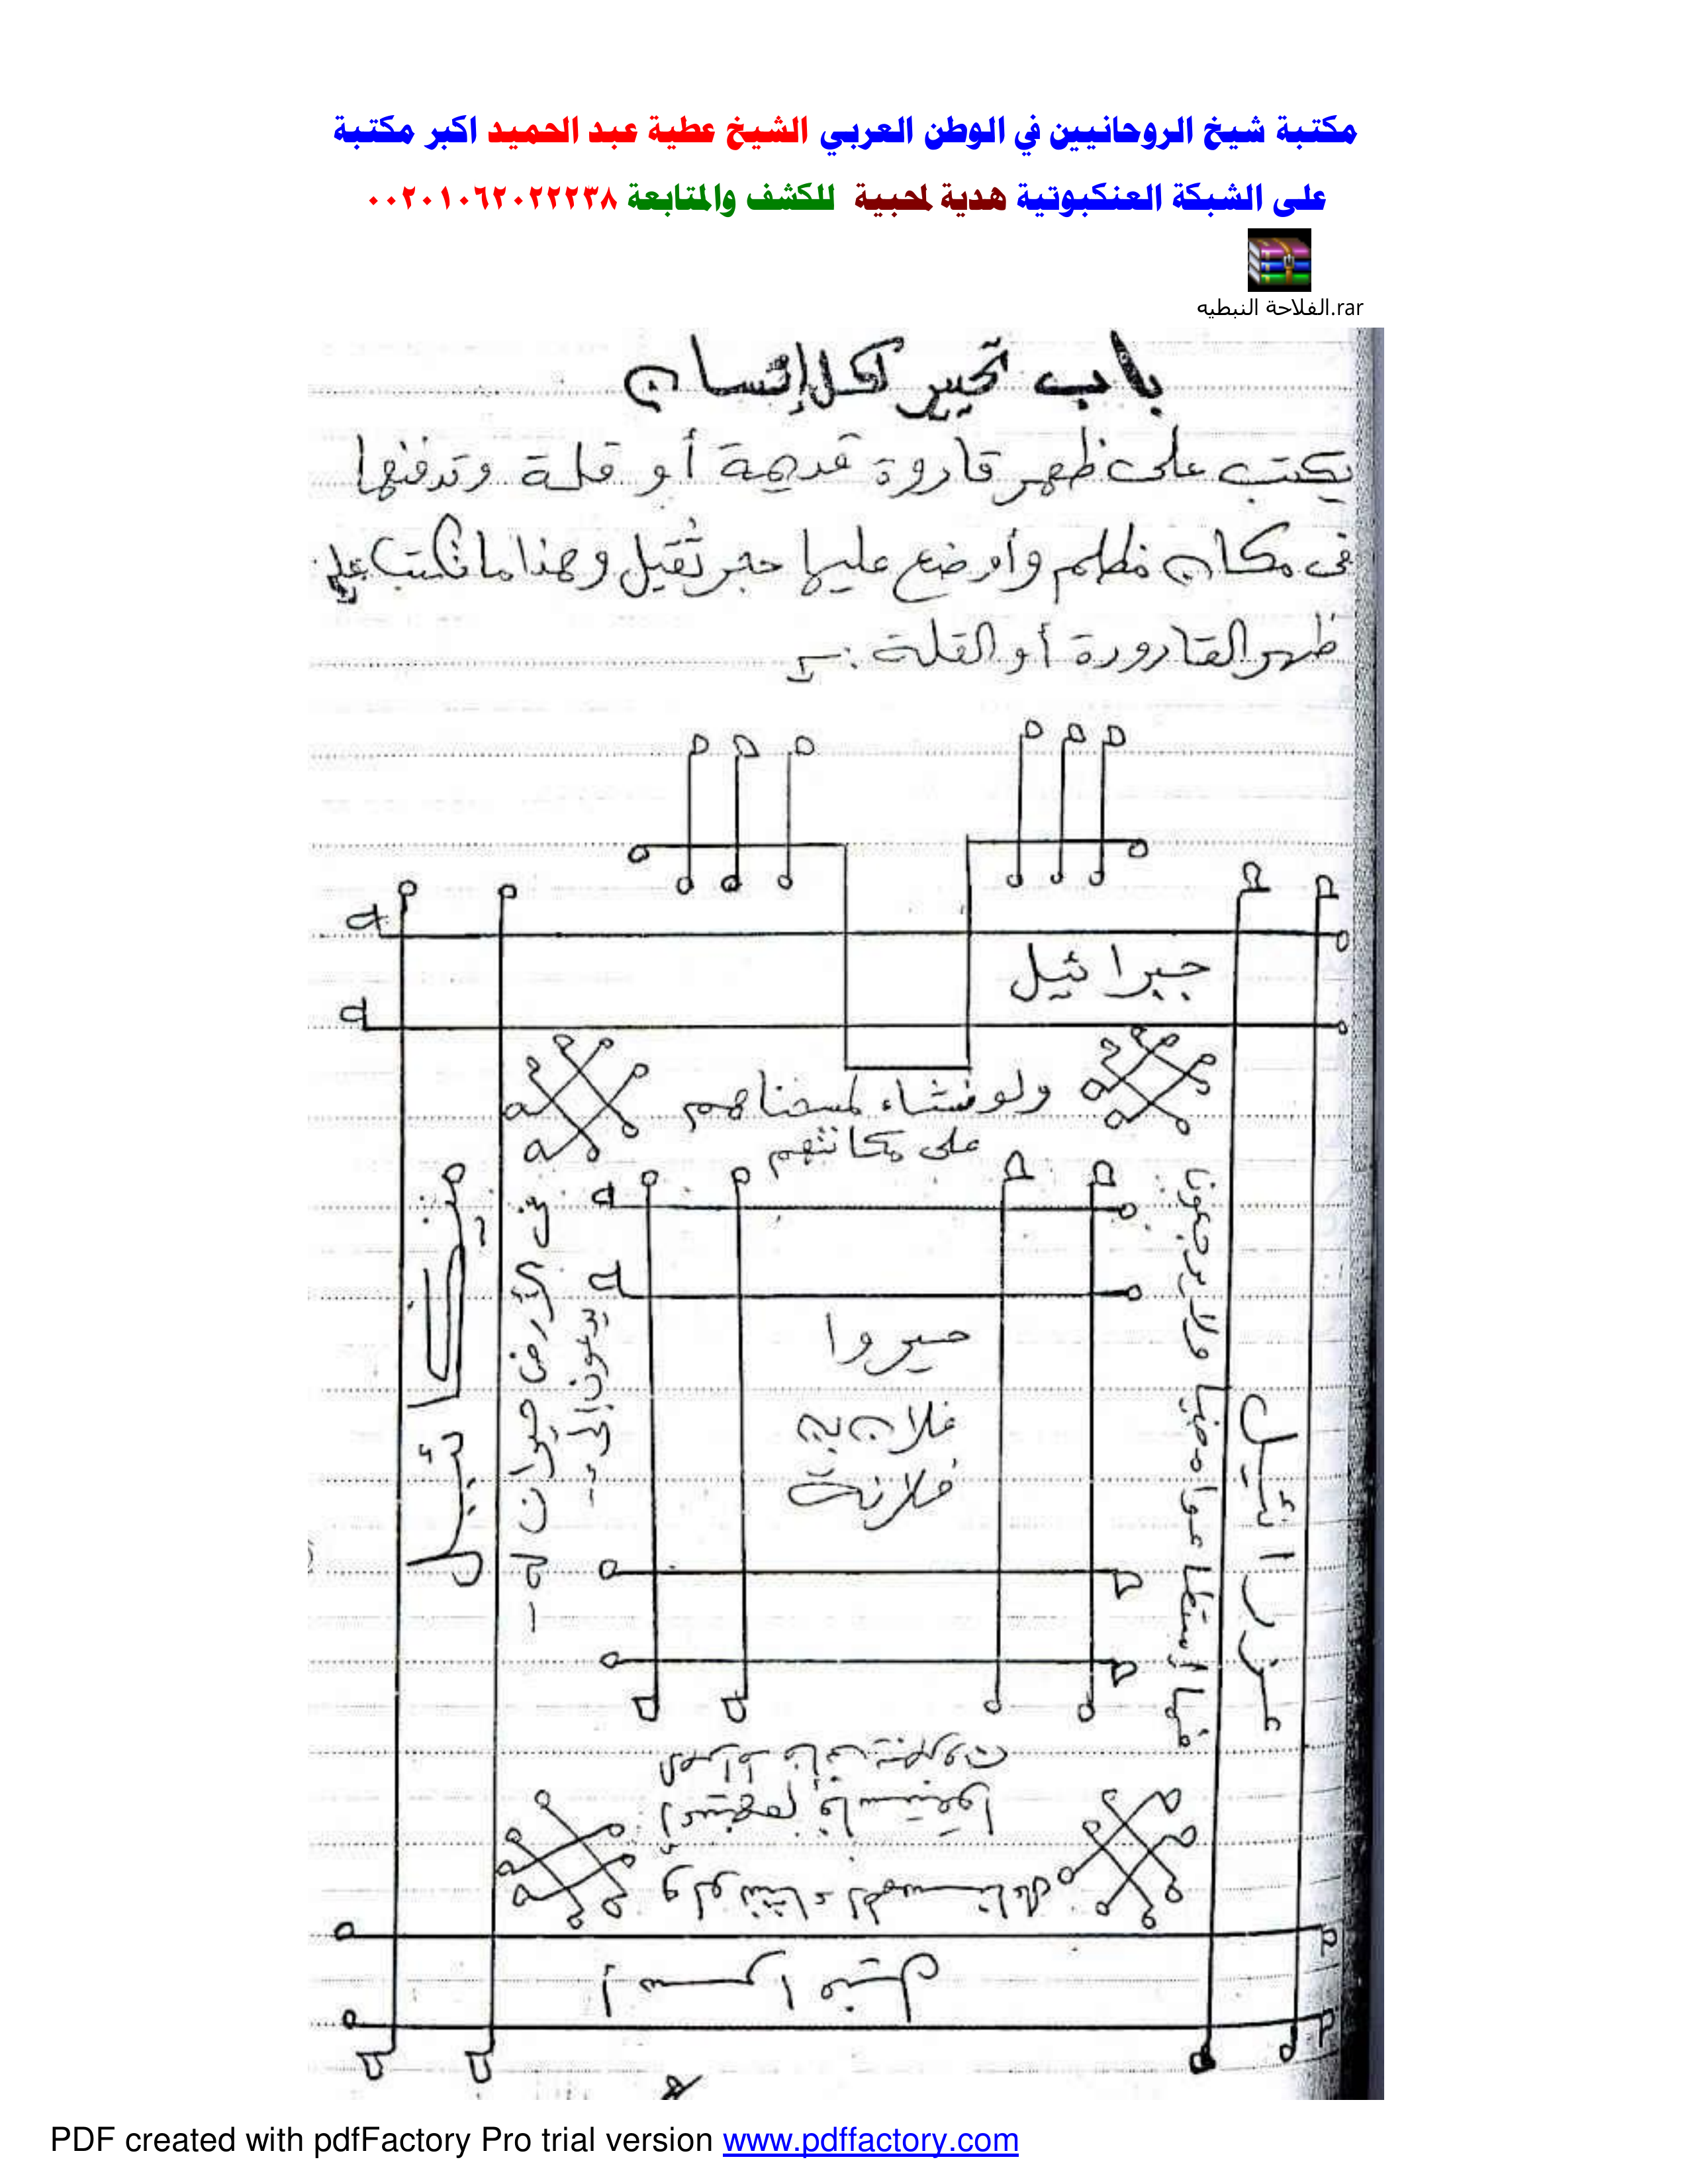 مكتبة شيخ الروحانيين في الوطن العربي الشيخ عطية عبد الحميد اكبر مكتبة
على الشبكة العنكبوتية هدية لمحبية للكشف والمتابعة ٠٠٢٠١٠٦٢٠٢٢٢٣٨
الفلاحة النبطيه.rar
باب تحيير لكل إنسان
يكتب على ظهر قاروة قديمة أو قلة وتدفنها
فى مكان مظلم وأوضع عليها حجر ثقيل وهذا ما تكتب على
ظهر القارورة أو القلة :-
جبرائيل
ولو نشاء لمسخناهم
على مكانتهم
فما إستطاعوا مضيا ولا يرجعون
عزرائيل
ميكائيل
فى الأرض حيران له -
يدعون إلى -
حيروا
فلان بن
فلانة
ولو نشاء لطمسنا على
أعينهم فاستبقوا
PDF created with pdfFactory Pro trial version www.pdffactory.com